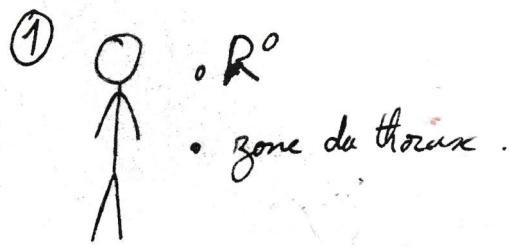 ①
• R°
• zone du thorax.